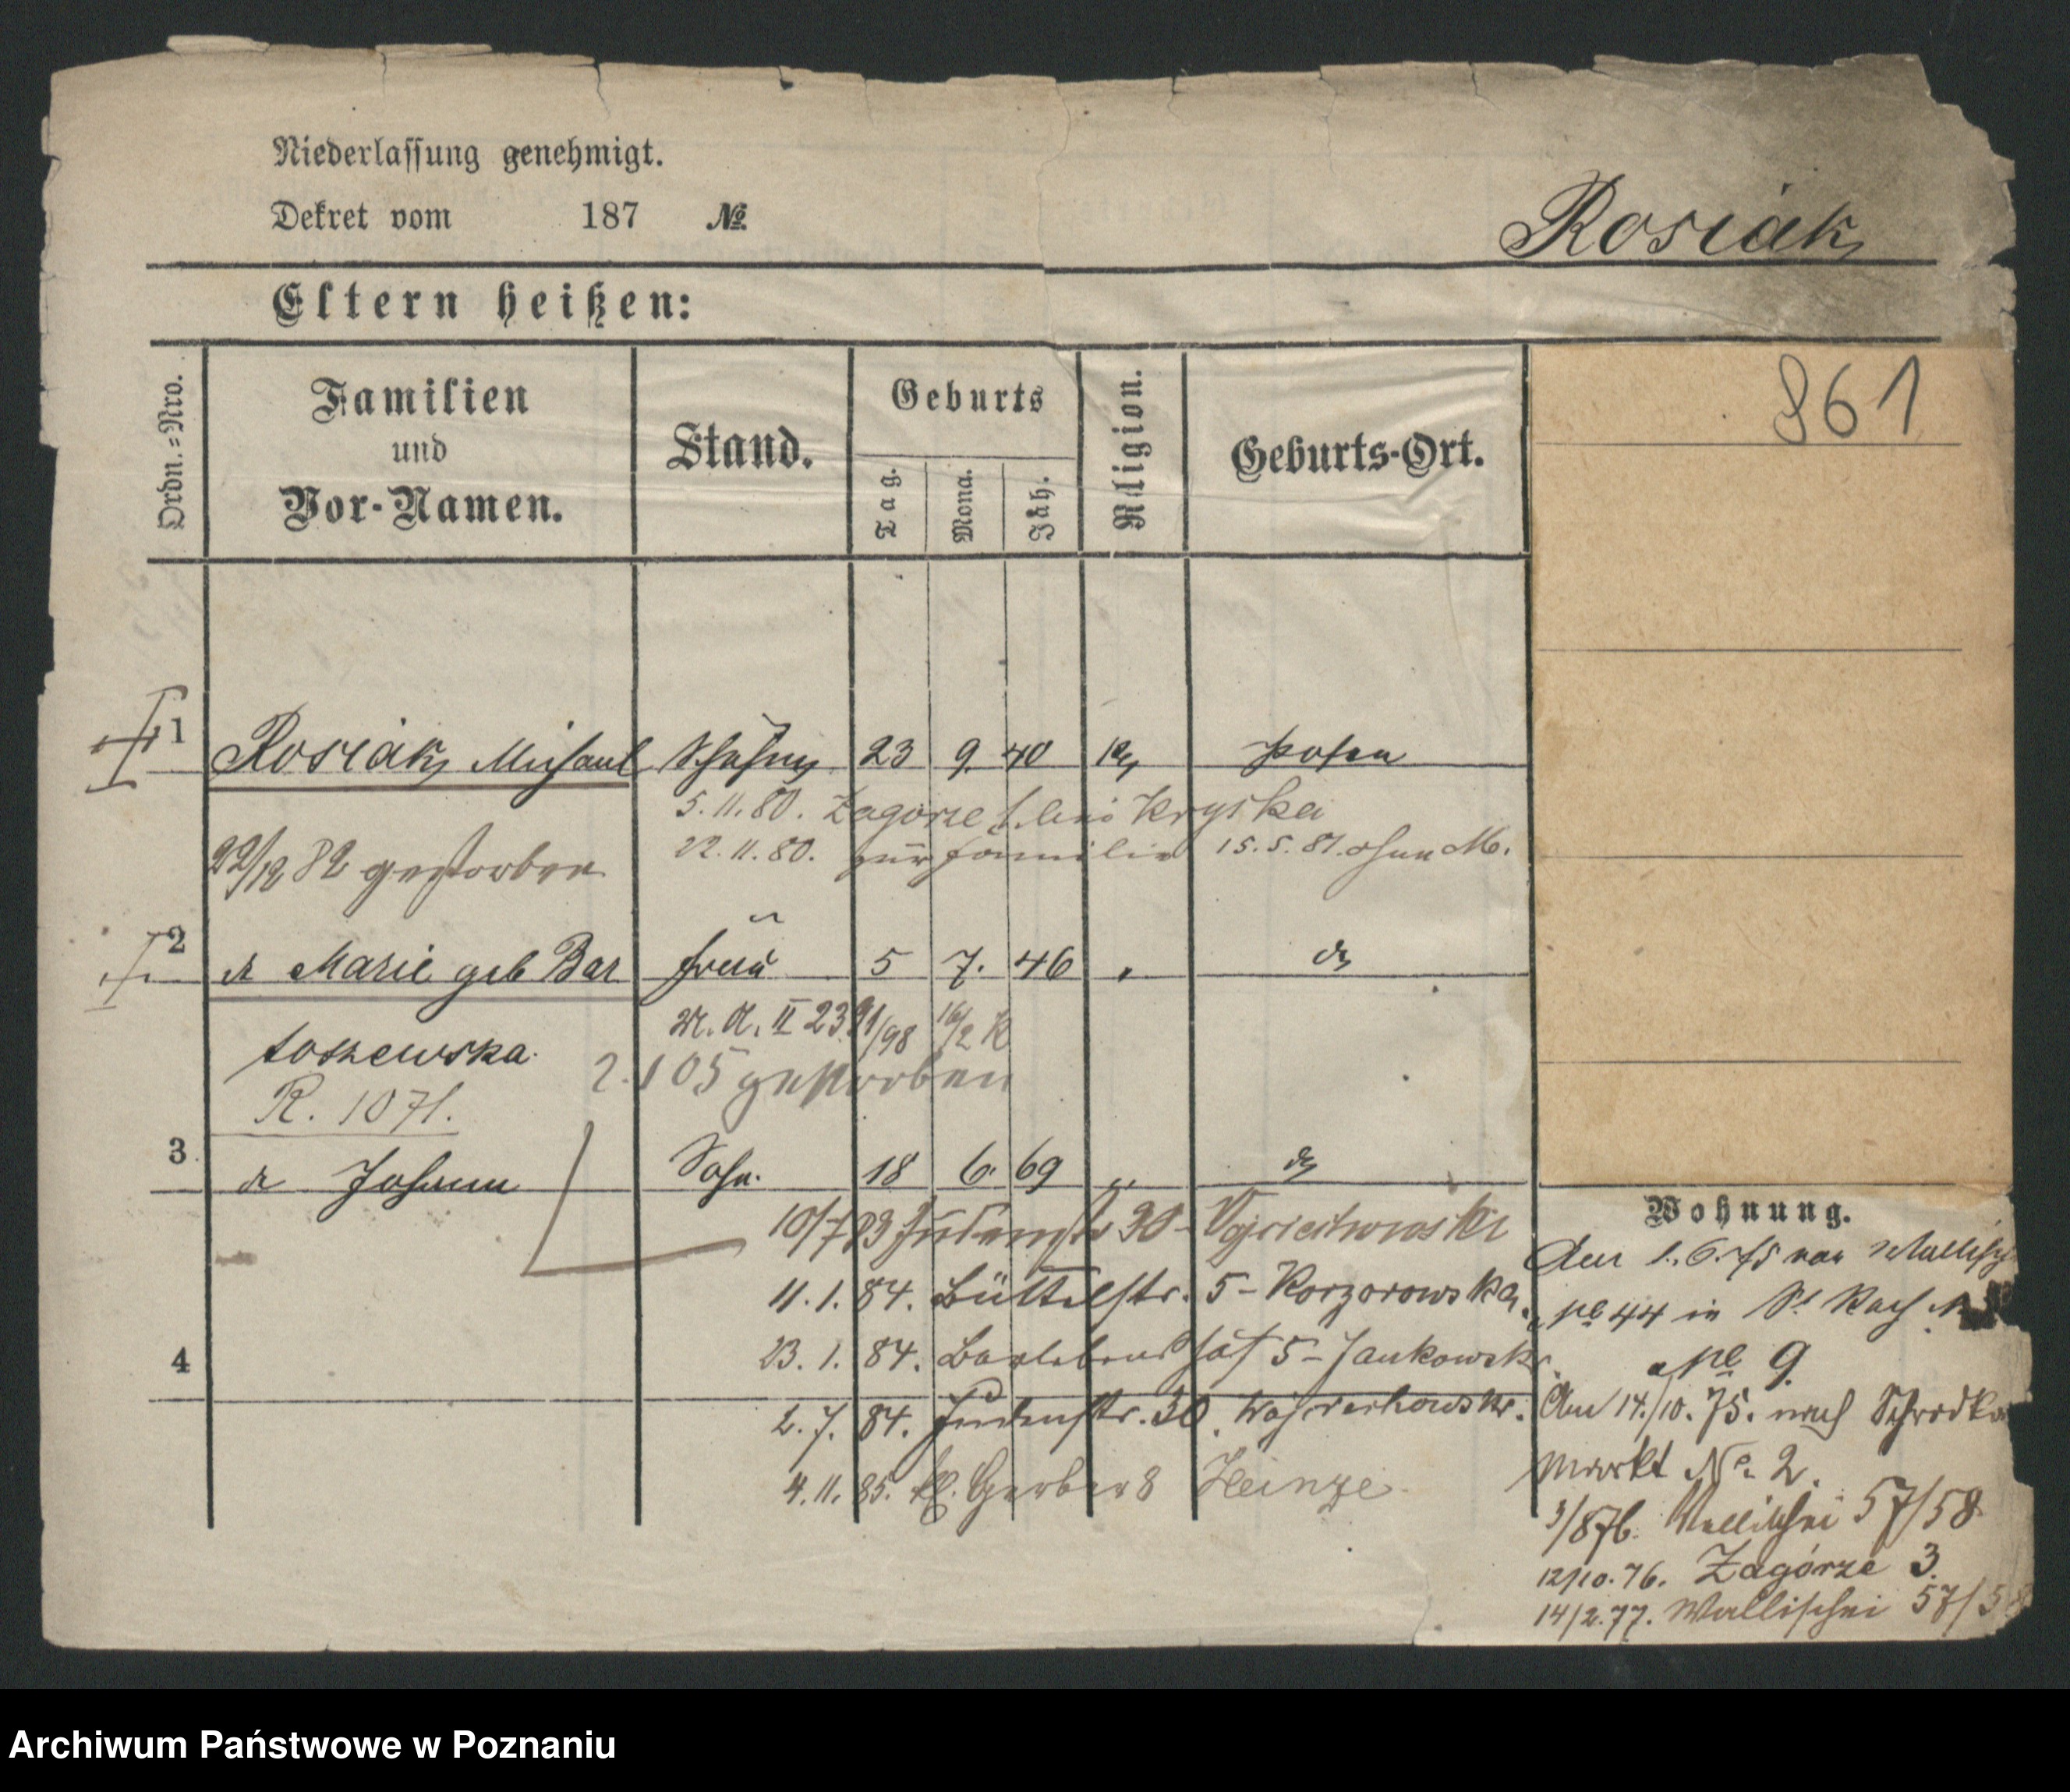 Niederlassung genehmigt.
Dekret vom 187 №
Rosiak
Eltern heißen:
Ordn.=Nro.
Familien
und
Vor-Namen.
Stand.
Geburts
Tag.
Mona.
Jah.
Religion.
Geburts-Ort.
861
1 Rosiak Michael 23 9. 40 Posen
5.11.80. Zagorze Kryska
22.11.80. zur Familie 15.5.81. ohne M.
22/12 82 gestorben
2 Marie geb Bar Frau 5 7. 46
toszewska
II 23 91/98 16/2 K
2.1 05 gestorben
R. 1071.
3 Johann Sohn. 18 6. 69
10/7 83 Judenstr 30 - Wojciechowski
11.1.84. Büttelstr. 5 - Korzorowska
23.1.84. 5 - Jankowski
2.7.84. Judenstr. 30. Wojciechowski.
4.11.85. kl. Gerber 8 Heinze
4
Wohnung.
Am 1.6.75 von Wallisch
№ 44 in St Roch
№ 9.
Am 14./10.75. nach Schrodka
markt No. 2.
3/876. Wallischei 57/58
12/10.76. Zagórze 3.
14/2.77. Wallischei 57/58
Archiwum Państwowe w Poznaniu